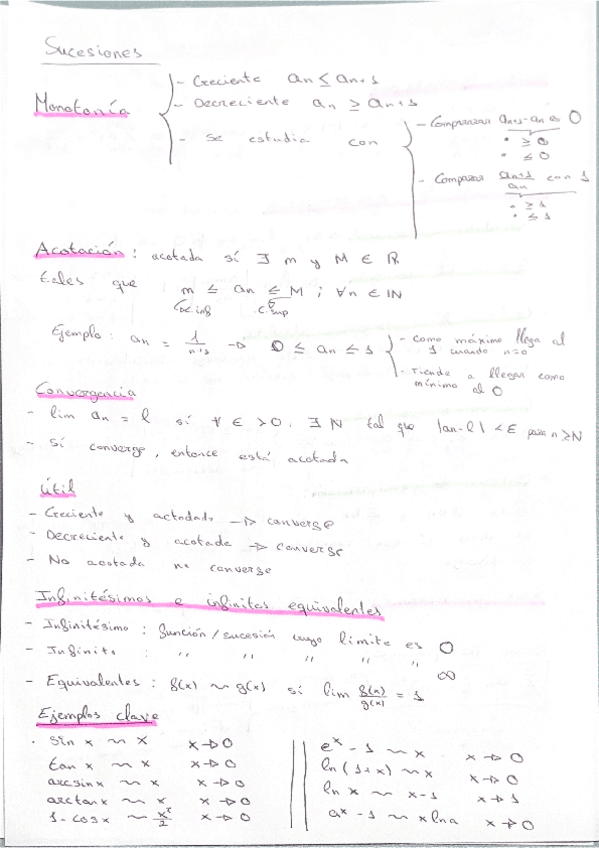 Sucesiones
Monotonía
- Creciente an ≤ an+1
- Decreciente an ≥ an+1
- se estudia con
- Comparar an+1-an es 0
• ≥ 0
• ≤ 0
- Comparar an+1/an con 1
• ≥ 1
• ≤ 1
Acotación: acotada sí ∃ m y M ∈ ℝ
tales que m ≤ an ≤ M ; ∀n ∈ ℕ
c. inf c. sup
Ejemplo: an = 1/n+1 → 0 ≤ an ≤ 1
- como máximo llega al
1 cuando n=0
- Tiende a llegar como
mínimo al 0
Convergencia
- lim an = l sí ∀ ε > 0, ∃ N tal que |an-l| < ε para n ≥ N
- Sí converge, entonce está acotada
útil
- Creciente y → converge
- Decreciente y acotada → converge
- No acotada no converge
Infinitésimos e infinitos equivalentes
- Infinitésimo: función/sucesión cuyo limite es 0
- Infinito: '' '' '' '' '' ∞
- Equivalentes: f(x) ~ g(x) sí lim f(x)/g(x) = 1
Ejemplos clave
• sin x ~ x x→0
tan x ~ x x→0
arcsin x ~ x x→0
arctan x ~ x x→0
1-cos x ~ x²/2 x→0
e^x - 1 ~ x x→0
ln(1+x) ~ x x→0
ln x ~ x-1 x→1
a^x - 1 ~ x ln a x→0